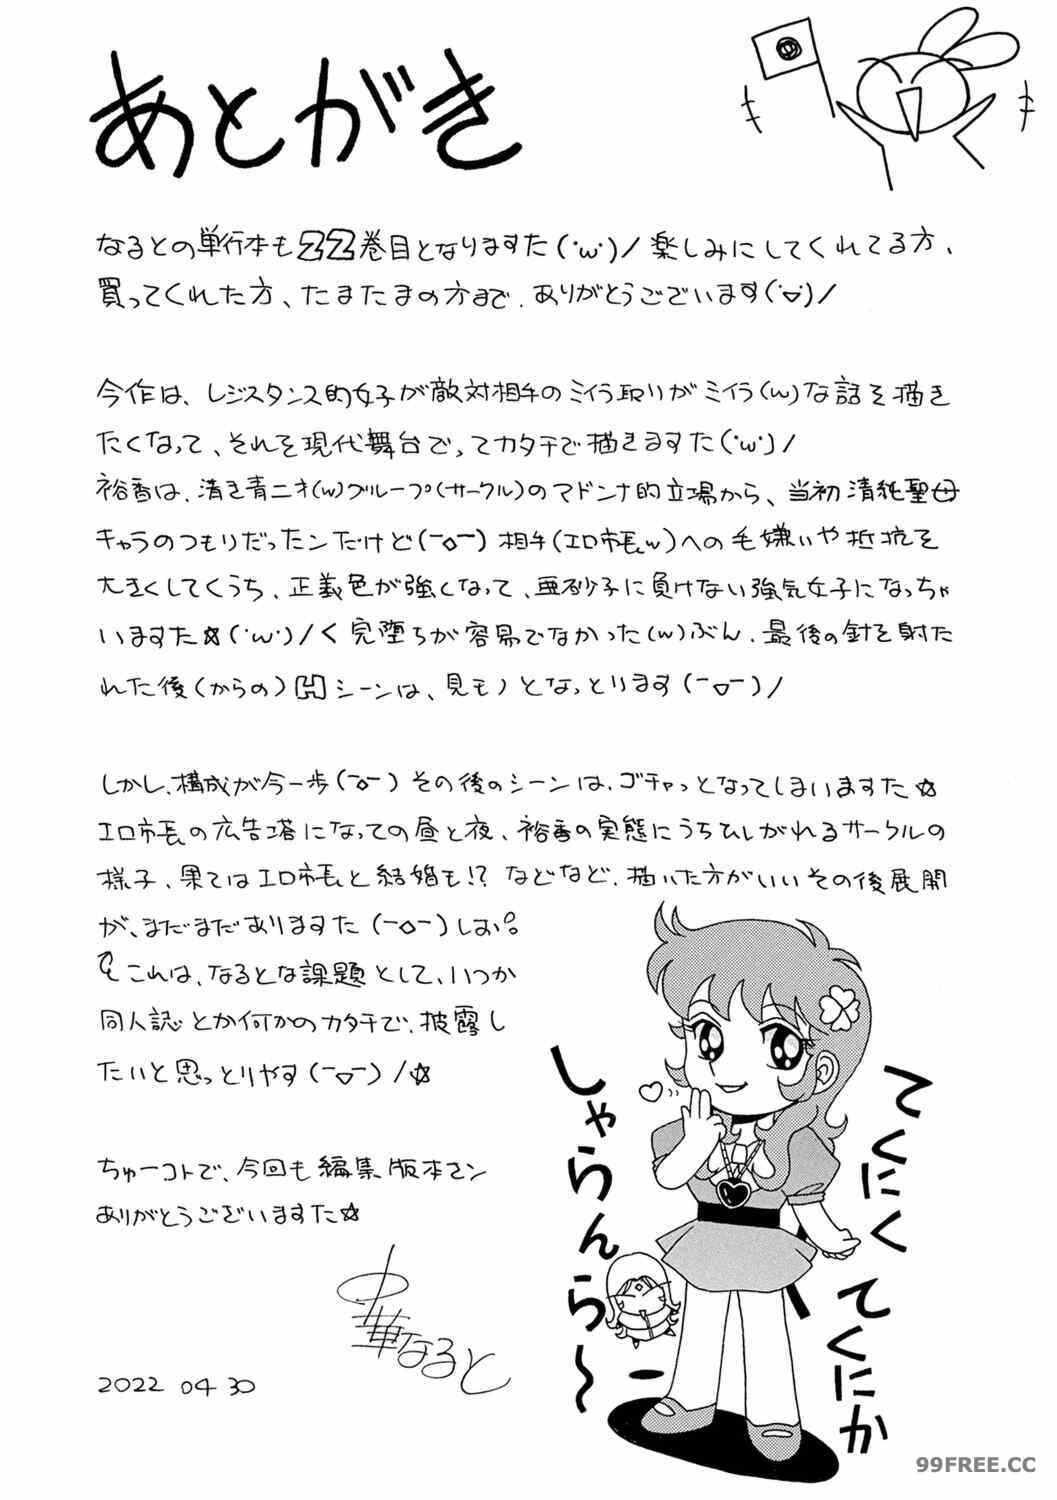 あとがき
なるとの単行本も22巻目となりますた(˙ω˙)ノ楽しみにしてくれてる方、
買ってくれた方、たまたまの方まで、ありがとうございます(˙▽˙)ノ
今作は、レジスタンス的女子が敵対相手のミイラ取りがミイラ(w)な話を描き
たくなって、それを現代舞台でってカタチで描きますた(˙ω˙)ノ
裕香は、清き青二才(w)グループ(サークル)のマドンナ的立場から、当初清純聖母
キャラのつもりだったンだけど(￣◇￣)相手(エロ市長w)への毛嫌いや抵抗を
大きくしてくうち、正義色が強くなって、亜砂子に負けない強気女子になっちゃ
いますた☆(˙ω˙)ノく完堕ちが容易でなかった(w)ぶん、最後の針を射た
れた後(からの)Hシーンは、見モノとなっとります(￣▽￣)ノ
しかし、構成が今一歩(￣◇￣)その後のシーンは、ゴチャっとなってしまいますた☆
エロ市長の広告塔になっての昼と夜、裕香の実態にうちひしがれるサークルの
様子、果てはエロ市長と結婚も!?などなど、描いた方がいいその後展開
が、まだまだありますた(￣◇￣)しお。
これは、なるとな課題として、いつか
同人誌とか何かのカタチで、披露し
たいと思っとりやす(￣▽￣)ノ☆
ちゅーコトで、今回も編集版本サン
ありがとうございますた☆
中華なると
2022 04 30
てくにく てくにか
しゃらんら〜
99FREE.CC